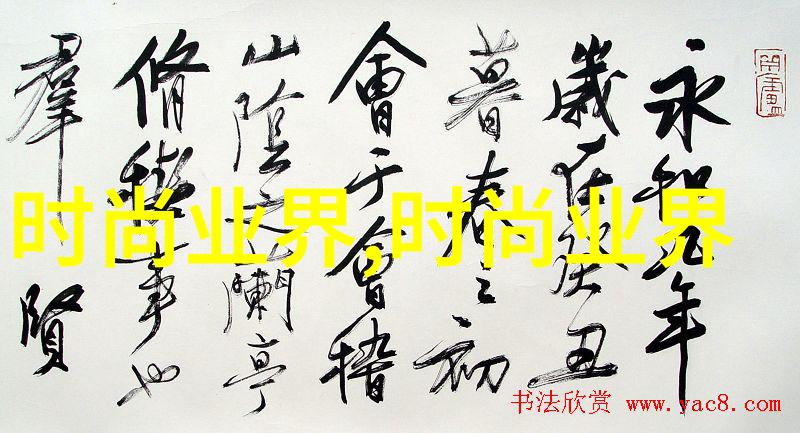 永和九年
歲在癸丑
暮春之初
會于會稽
山陰之蘭亭
脩稧事也
羣賢
时尚业界,时尚业界
书法欣赏 www.yac8.com